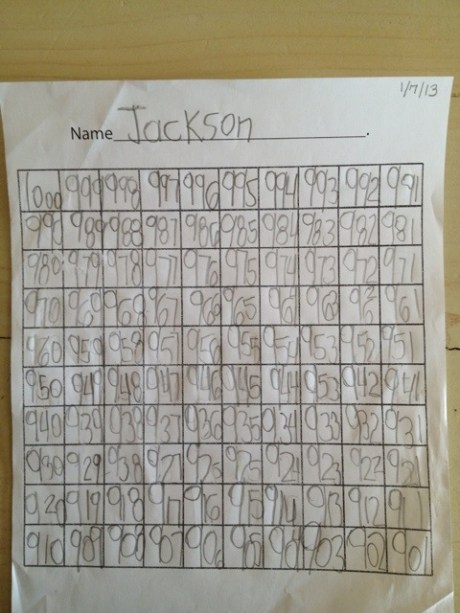 1/7/13
Name Jackson .
1000 999 998 997 996 995 994 993 992 991
990 989 988 987 986 985 984 983 982 981
980 979 978 977 976 975 974 973 972 971
970 969 968 967 966 965 964 963 962 961
960 959 958 957 956 955 954 953 952 951
950 949 948 947 946 945 944 943 942 941
940 939 938 937 936 935 934 933 932 931
930 929 928 927 926 925 924 923 922 921
920 919 918 917 916 915 914 913 912 911
910 909 908 907 906 905 904 903 902 901